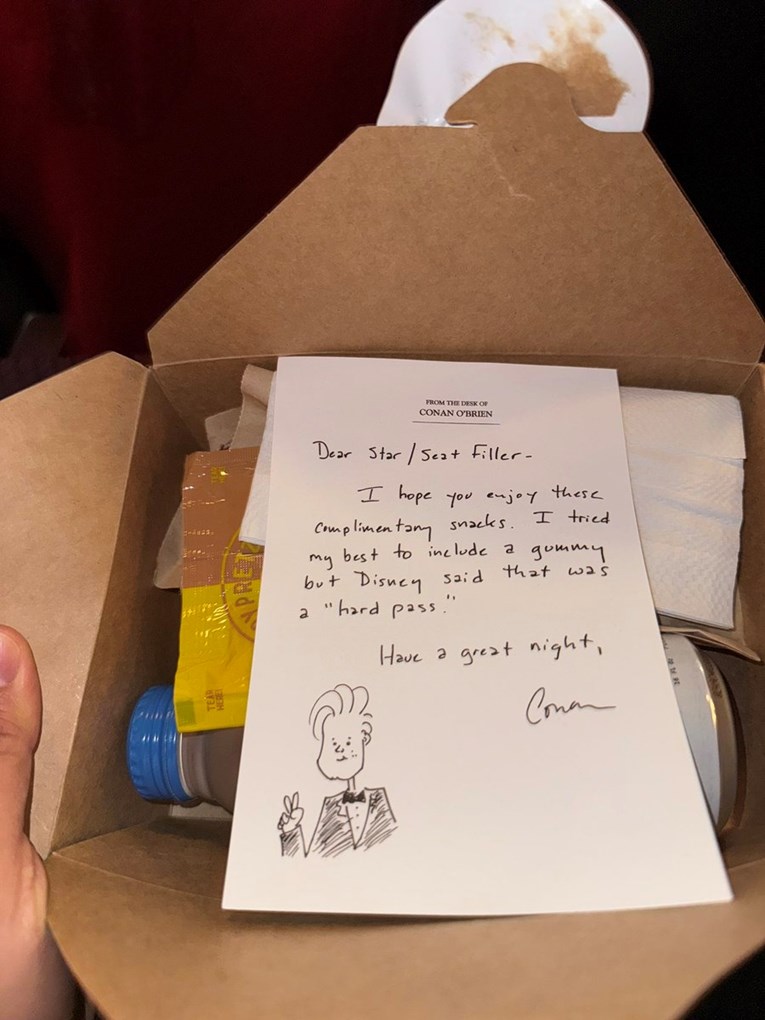 FROM THE DESK OF
CONAN O'BRIEN
Dear Star/Seat Filler-
I hope you enjoy these
complimentary snacks. I tried
my best to include a gummy
but Disney said that was
a "hard pass."
Have a great night,
Conan
PRET
TEAR
HERE!